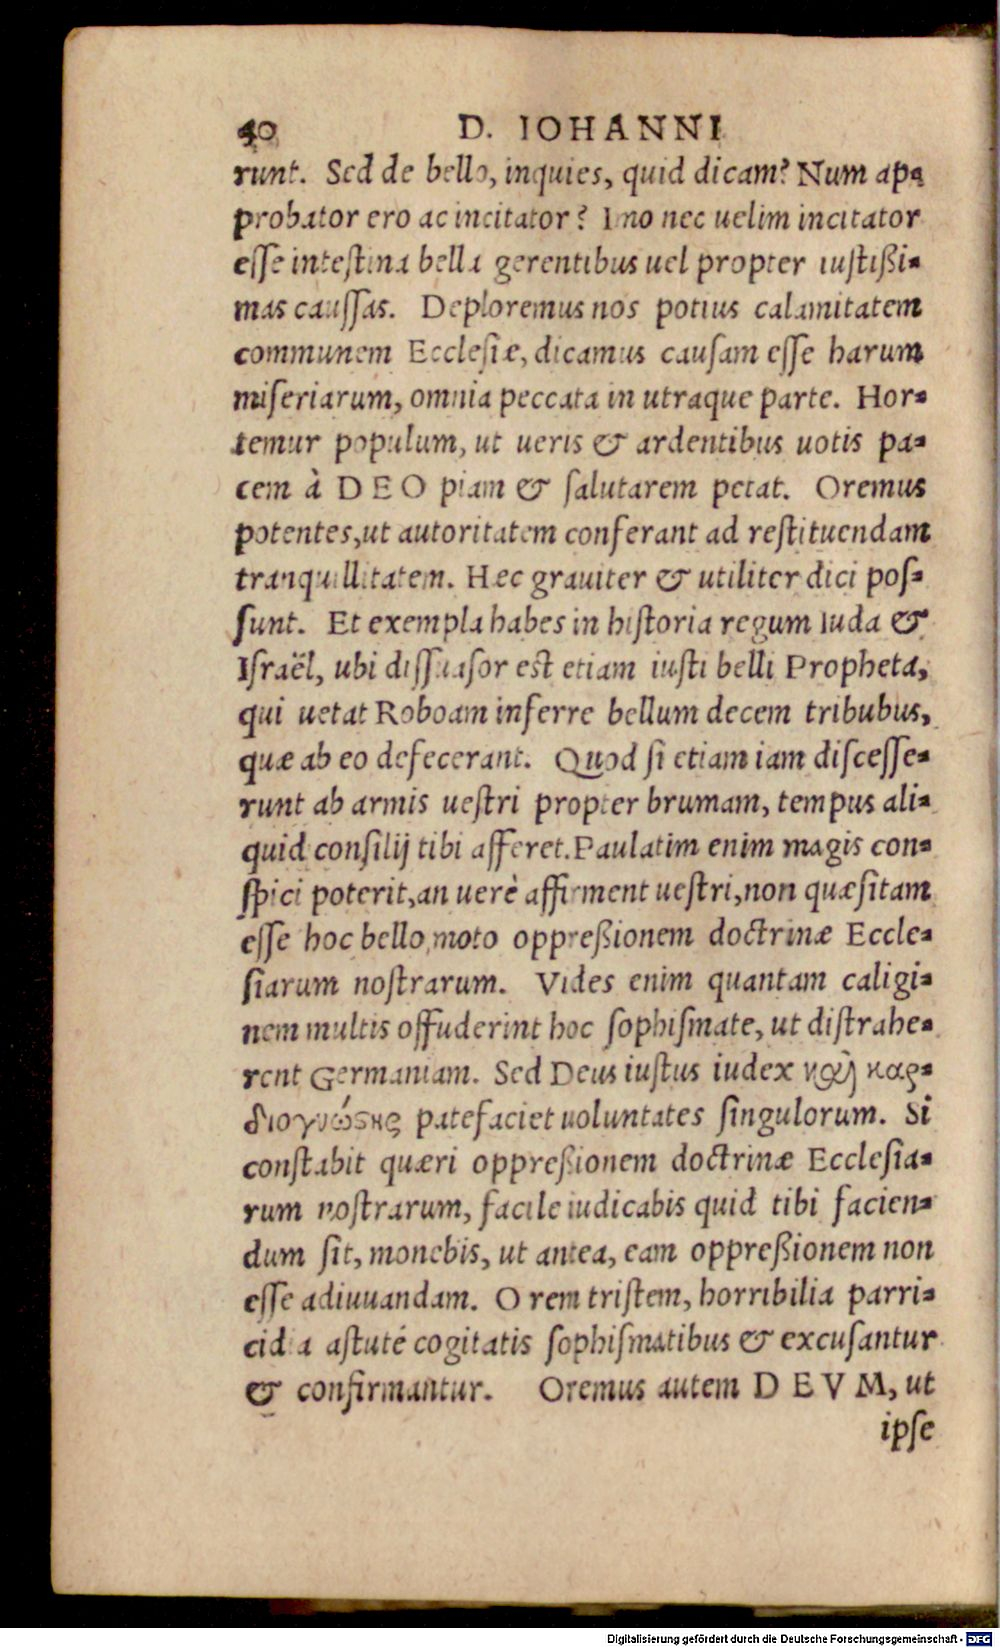 40 D. IOHANNI
runt. Sed de bello, inquies, quid dicam? Num ap⸗
probator ero ac incitator? Imo nec uelim incitator
eſſe inteſtina bella gerentibus uel propter iuſtißi⸗
mas cauſſas. Deploremus nos potius calamitatem
communem Eccleſiæ, dicamus cauſam eſſe harum
miſeriarum, omnia peccata in utraque parte. Hor⸗
temur populum, ut ueris & ardentibus uotis pa⸗
cem à DEO piam & ſalutarem petat. Oremus
potentes, ut autoritatem conferant ad reſtituendam
tranquillitatem. Hæc grauiter & utiliter dici poſ⸗
ſunt. Et exempla habes in hiſtoria regum Iuda &
Iſraël, ubi diſſuaſor eſt etiam iuſti belli Propheta,
qui uetat Roboam inferre bellum decem tribubus,
quæ ab eo defecerant. Quod ſi etiam iam diſceſſe⸗
runt ab armis ueſtri propter brumam, tempus ali⸗
quid conſilij tibi afferet. Paulatim enim magis con⸗
ſpici poterit, an uerè affirment ueſtri, non quæſitam
eſſe hoc bello moto oppreßionem doctrinæ Eccle⸗
ſiarum noſtrarum. Vides enim quantam caligi⸗
nem multis offuderint hoc ſophiſmate, ut diſtrahe⸗
rent Germaniam. Sed Deus iuſtus iudex καὶ καρ⸗
διογνώϛης patefaciet uoluntates ſingulorum. Si
conſtabit quæri oppreßionem doctrinæ Eccleſia⸗
rum noſtrarum, facile iudicabis quid tibi facien⸗
dum ſit, monebis, ut antea, eam oppreßionem non
eſſe adiuuandam. O rem triſtem, horribilia parri⸗
cidia aſtutè cogitatis ſophiſmatibus & excuſantur
& confirmantur. Oremus autem DEVM, ut
ipſe
Digitalisierung gefördert durch die Deutsche Forschungsgemeinschaft - DFG